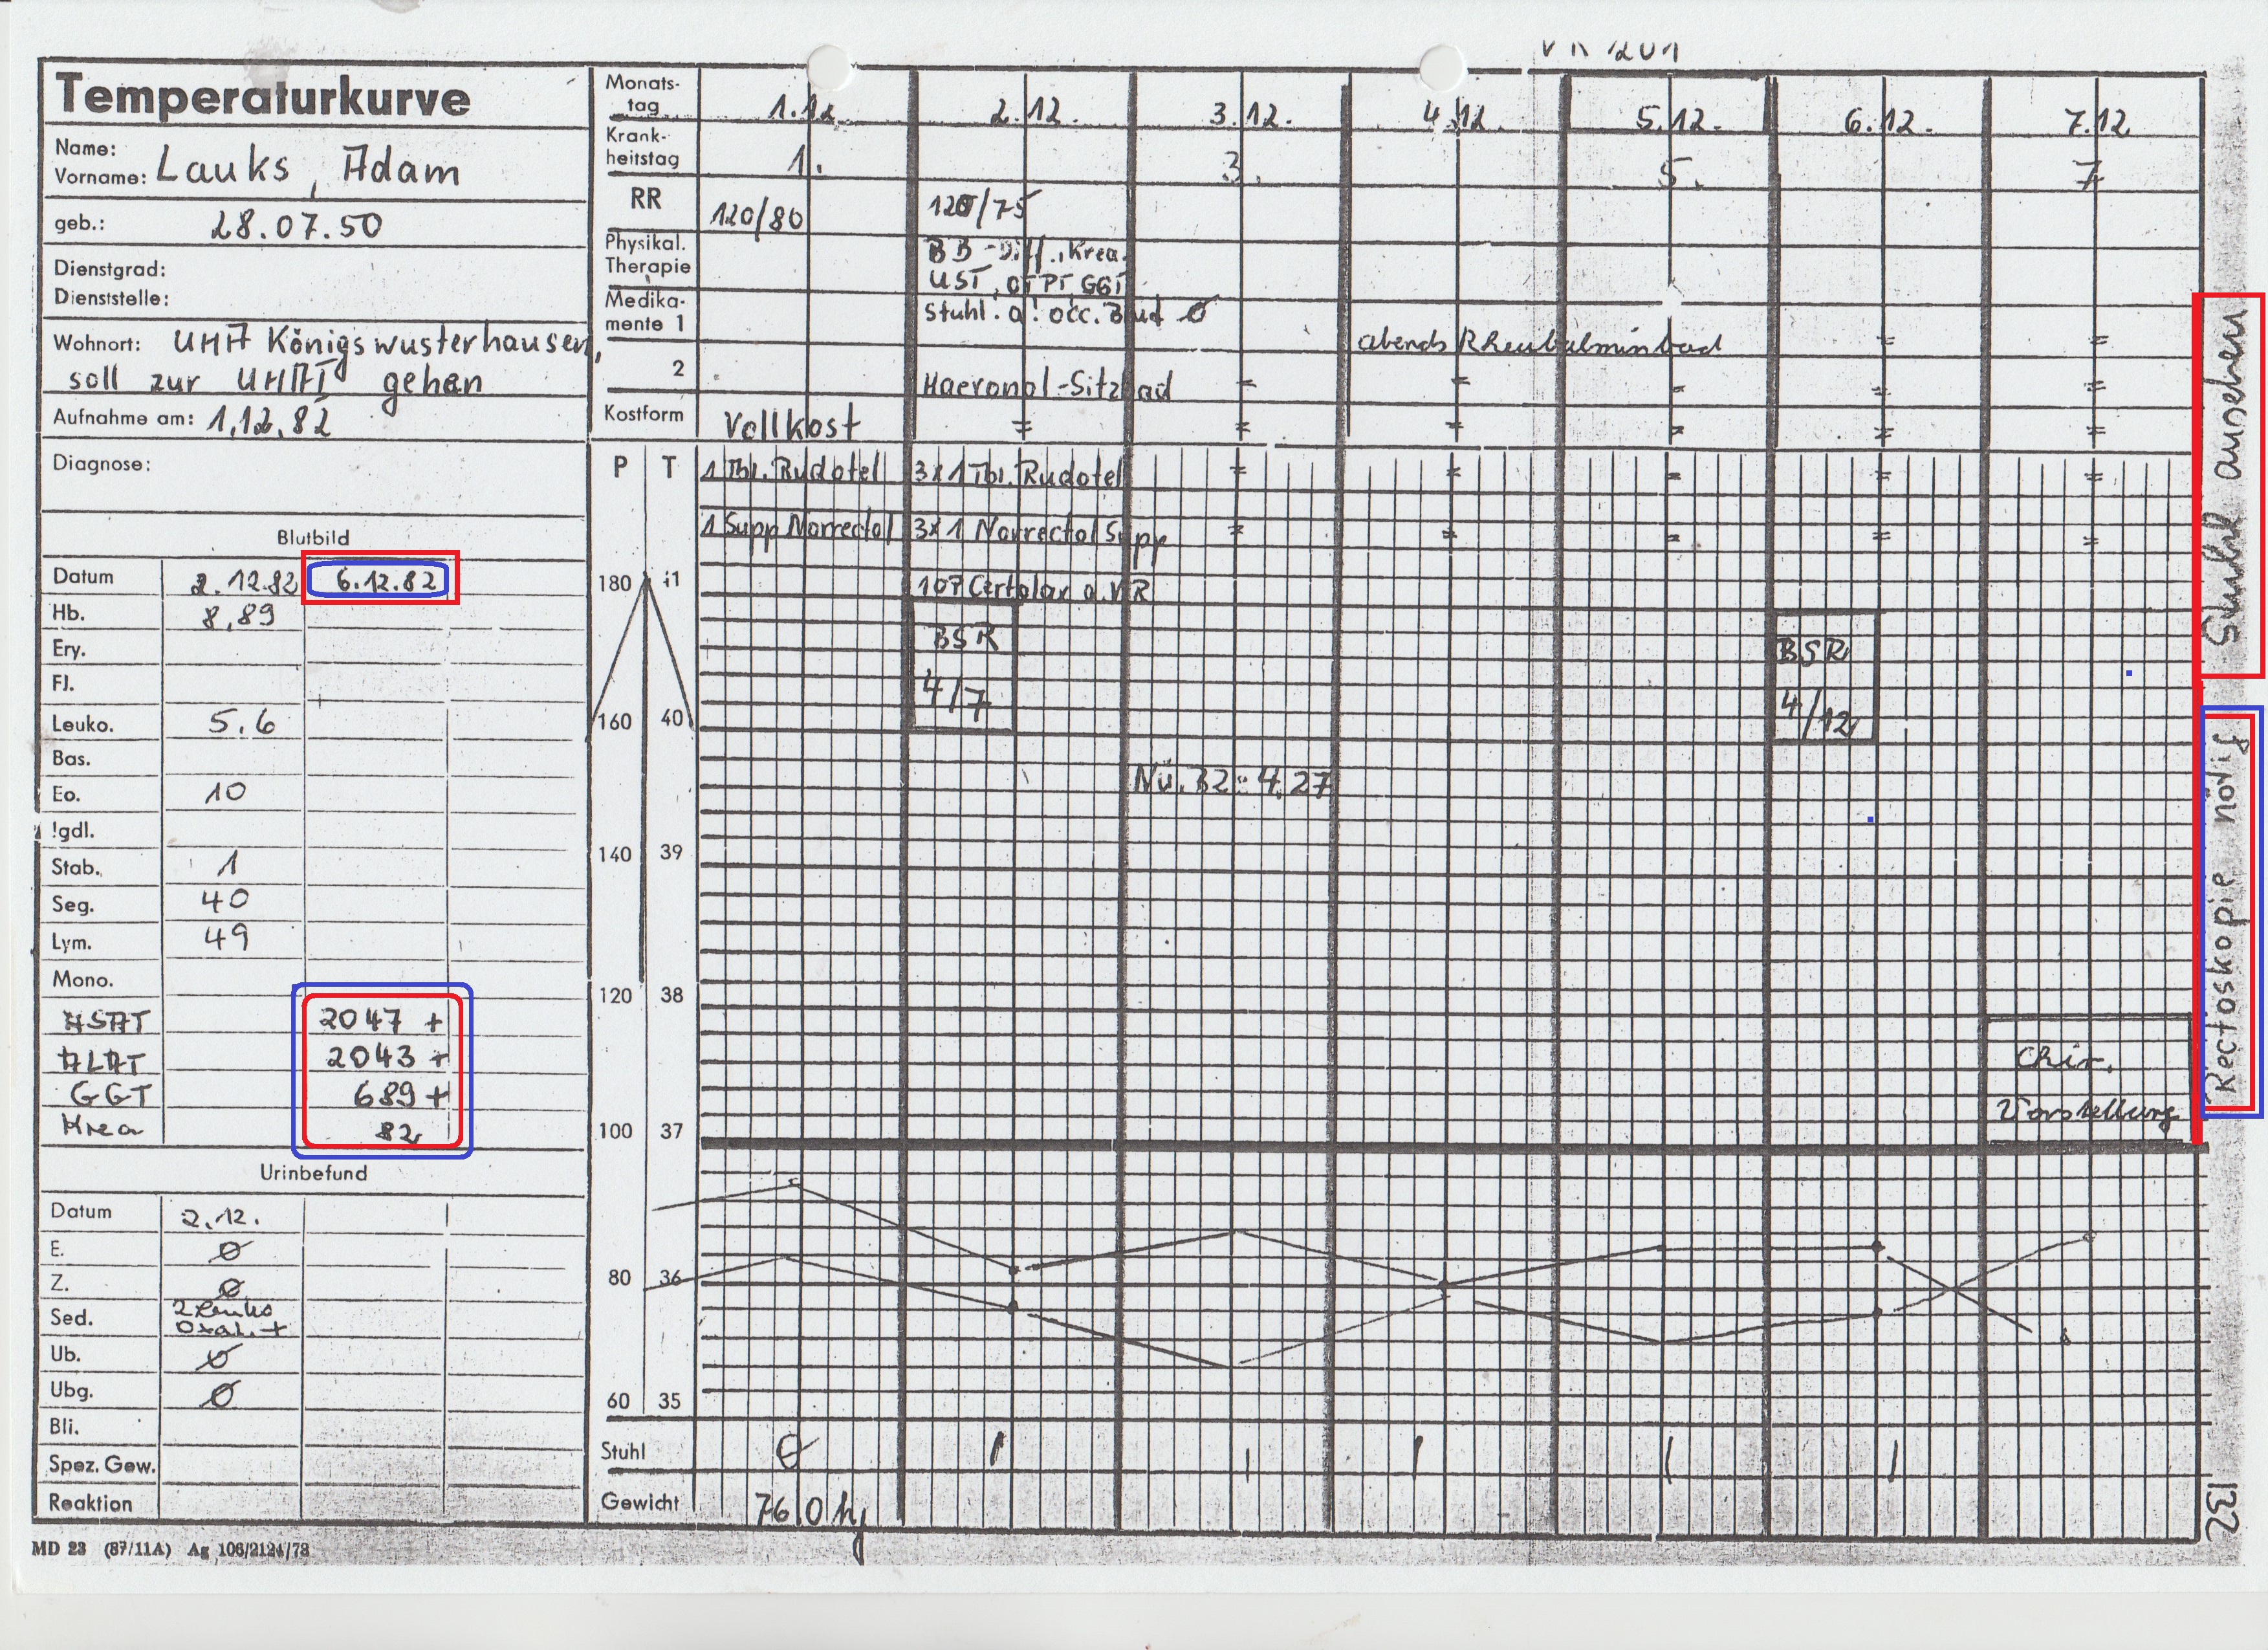 Temperaturkurve
Name:
Vorname: Lauks, Adam
geb.: 28.07.50
Dienstgrad:
Dienststelle:
Wohnort: UHA Königswusterhausen,
soll zur gehen
Aufnahme am: 1.12.82
Diagnose:
Blutbild
Datum 2.12.82 6.12.82
Hb. 8,89
Ery.
FJ.
Leuko. 5.6
Bas.
Eo. 10
Jgdl.
Stab. 1
Seg. 40
Lym. 49
Mono.
ASAT 2047 +
ALAT 2043 +
GGT 689 +
Krea 82
Urinbefund
Datum 2.12.
E. Ø
Z. Ø
Sed. 2 Leuko
Oxal. +
Ub. Ø
Ubg. Ø
Bli.
Spez. Gew.
Reaktion
MD 23 (87/11A) Ag 106/2124/78
Monats-
tag 1.12. 2.12. 3.12. 4.12. 5.12. 6.12. 7.12
Krank-
heitstag 1. 3. 5. 7
RR 120/80 120/75
Physikal.
Therapie BB-Diff., Krea.
UST, OTPT GGT
Medika-
mente 1 Stuhl. a! occ. Blut Ø
abends Rheubalminbad = =
2 Haeronal-Sitzbad = = = = =
Kostform Vollkost = = = = = =
P T
1 Tbl. Rudotel 3x1 Tbl. Rudotel = = = = =
1 Supp Norrectol 3x1 Norrectol Supp = = = = =
180 41
Certolax
BSR
4/7
BSR
4/12
160 40
Nü. BZ: 4.27
140 39
120 38
Chir.
Vorstellung
100 37
80 36
60 35
Stuhl Ø | | | | |
Gewicht 76,0
Stuhl ansehen
Rectoskopie nötig
132